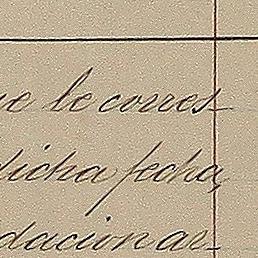 ue le corres-
dicha fecha,
dacion ar-